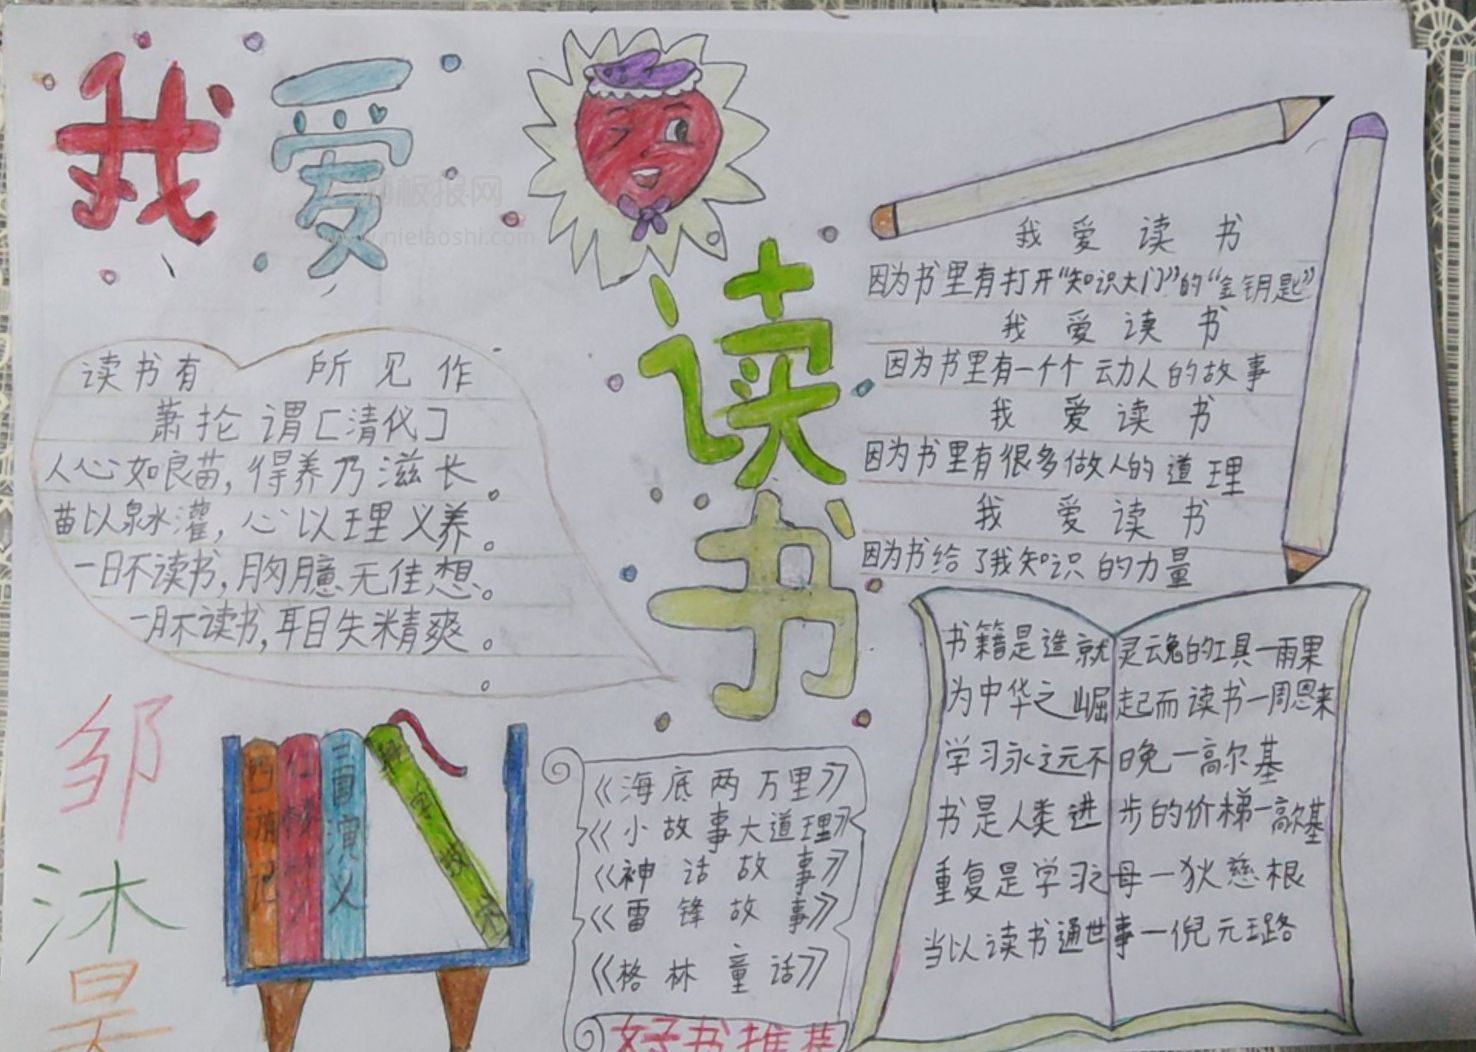 我爱
读书
读书有所见作
萧抡谓[清代]
人心如良苗，得养乃滋长。
苗以泉水灌，心以理义养。
一日不读书，胸臆无佳想。
一月不读书，耳目失精爽。
我爱读书
因为书里有打开“知识大门”的“金钥匙”
我爱读书
因为书里有一个个动人的故事
我爱读书
因为书里有很多做人的道理
我爱读书
因为书给了我知识的力量
书籍是造就灵魂的工具一雨果
为中华之崛起而读书一周恩来
学习永远不晚一高尔基
书是人类进步的价梯一高尔基
重复是学习之母一狄慈根
当以读书通世事一倪元璐
邹
沐
昊
西游记
三国演义
《海底两万里》
《小故事大道理》
《神话故事》
《雷锋故事》
《格林童话》
好书推荐
www.nielaoshi.com